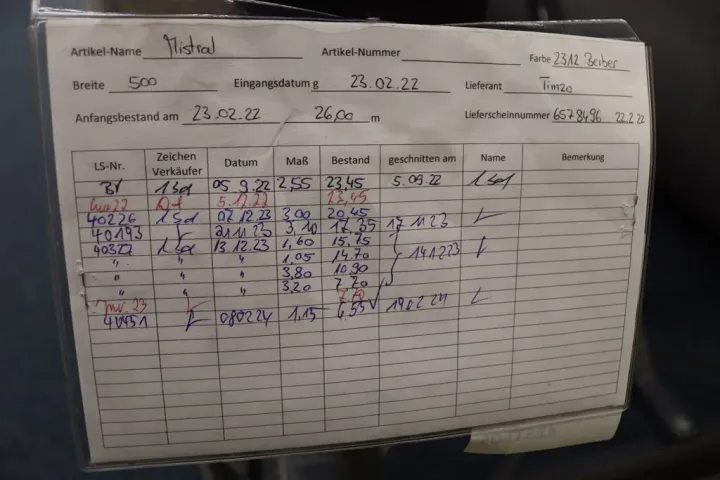 Artikel-Name Mistral Artikel-Nummer Farbe 2312 Beiber
Breite 500 Eingangsdatum g 23.02.22 Lieferant Timzo
Anfangsbestand am 23.02.22 26,00 m Lieferscheinnummer 6578496 22.2.22
LS-Nr. Zeichen Verkäufer Datum Maß Bestand geschnitten am Name Bemerkung
BV 05.9.22 2,55 23,45 5.09.22
5.12.22 23,45
40226 07.12.23 3,00 20,45
40193 21.11.23 3,10 17,35 17.11.23
40322 13.12.23 1,60 15.75
" " 1,05 14.70 141223
" " 3,80 10.90
" " 3,20 7.70
Inv. 23 7.70
40451 080224 1,15 6,55 190224